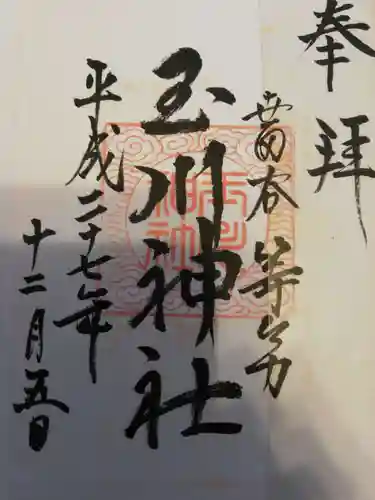 奉拝
世田谷 等々力
玉川神社
平成二十七年
十二月五日